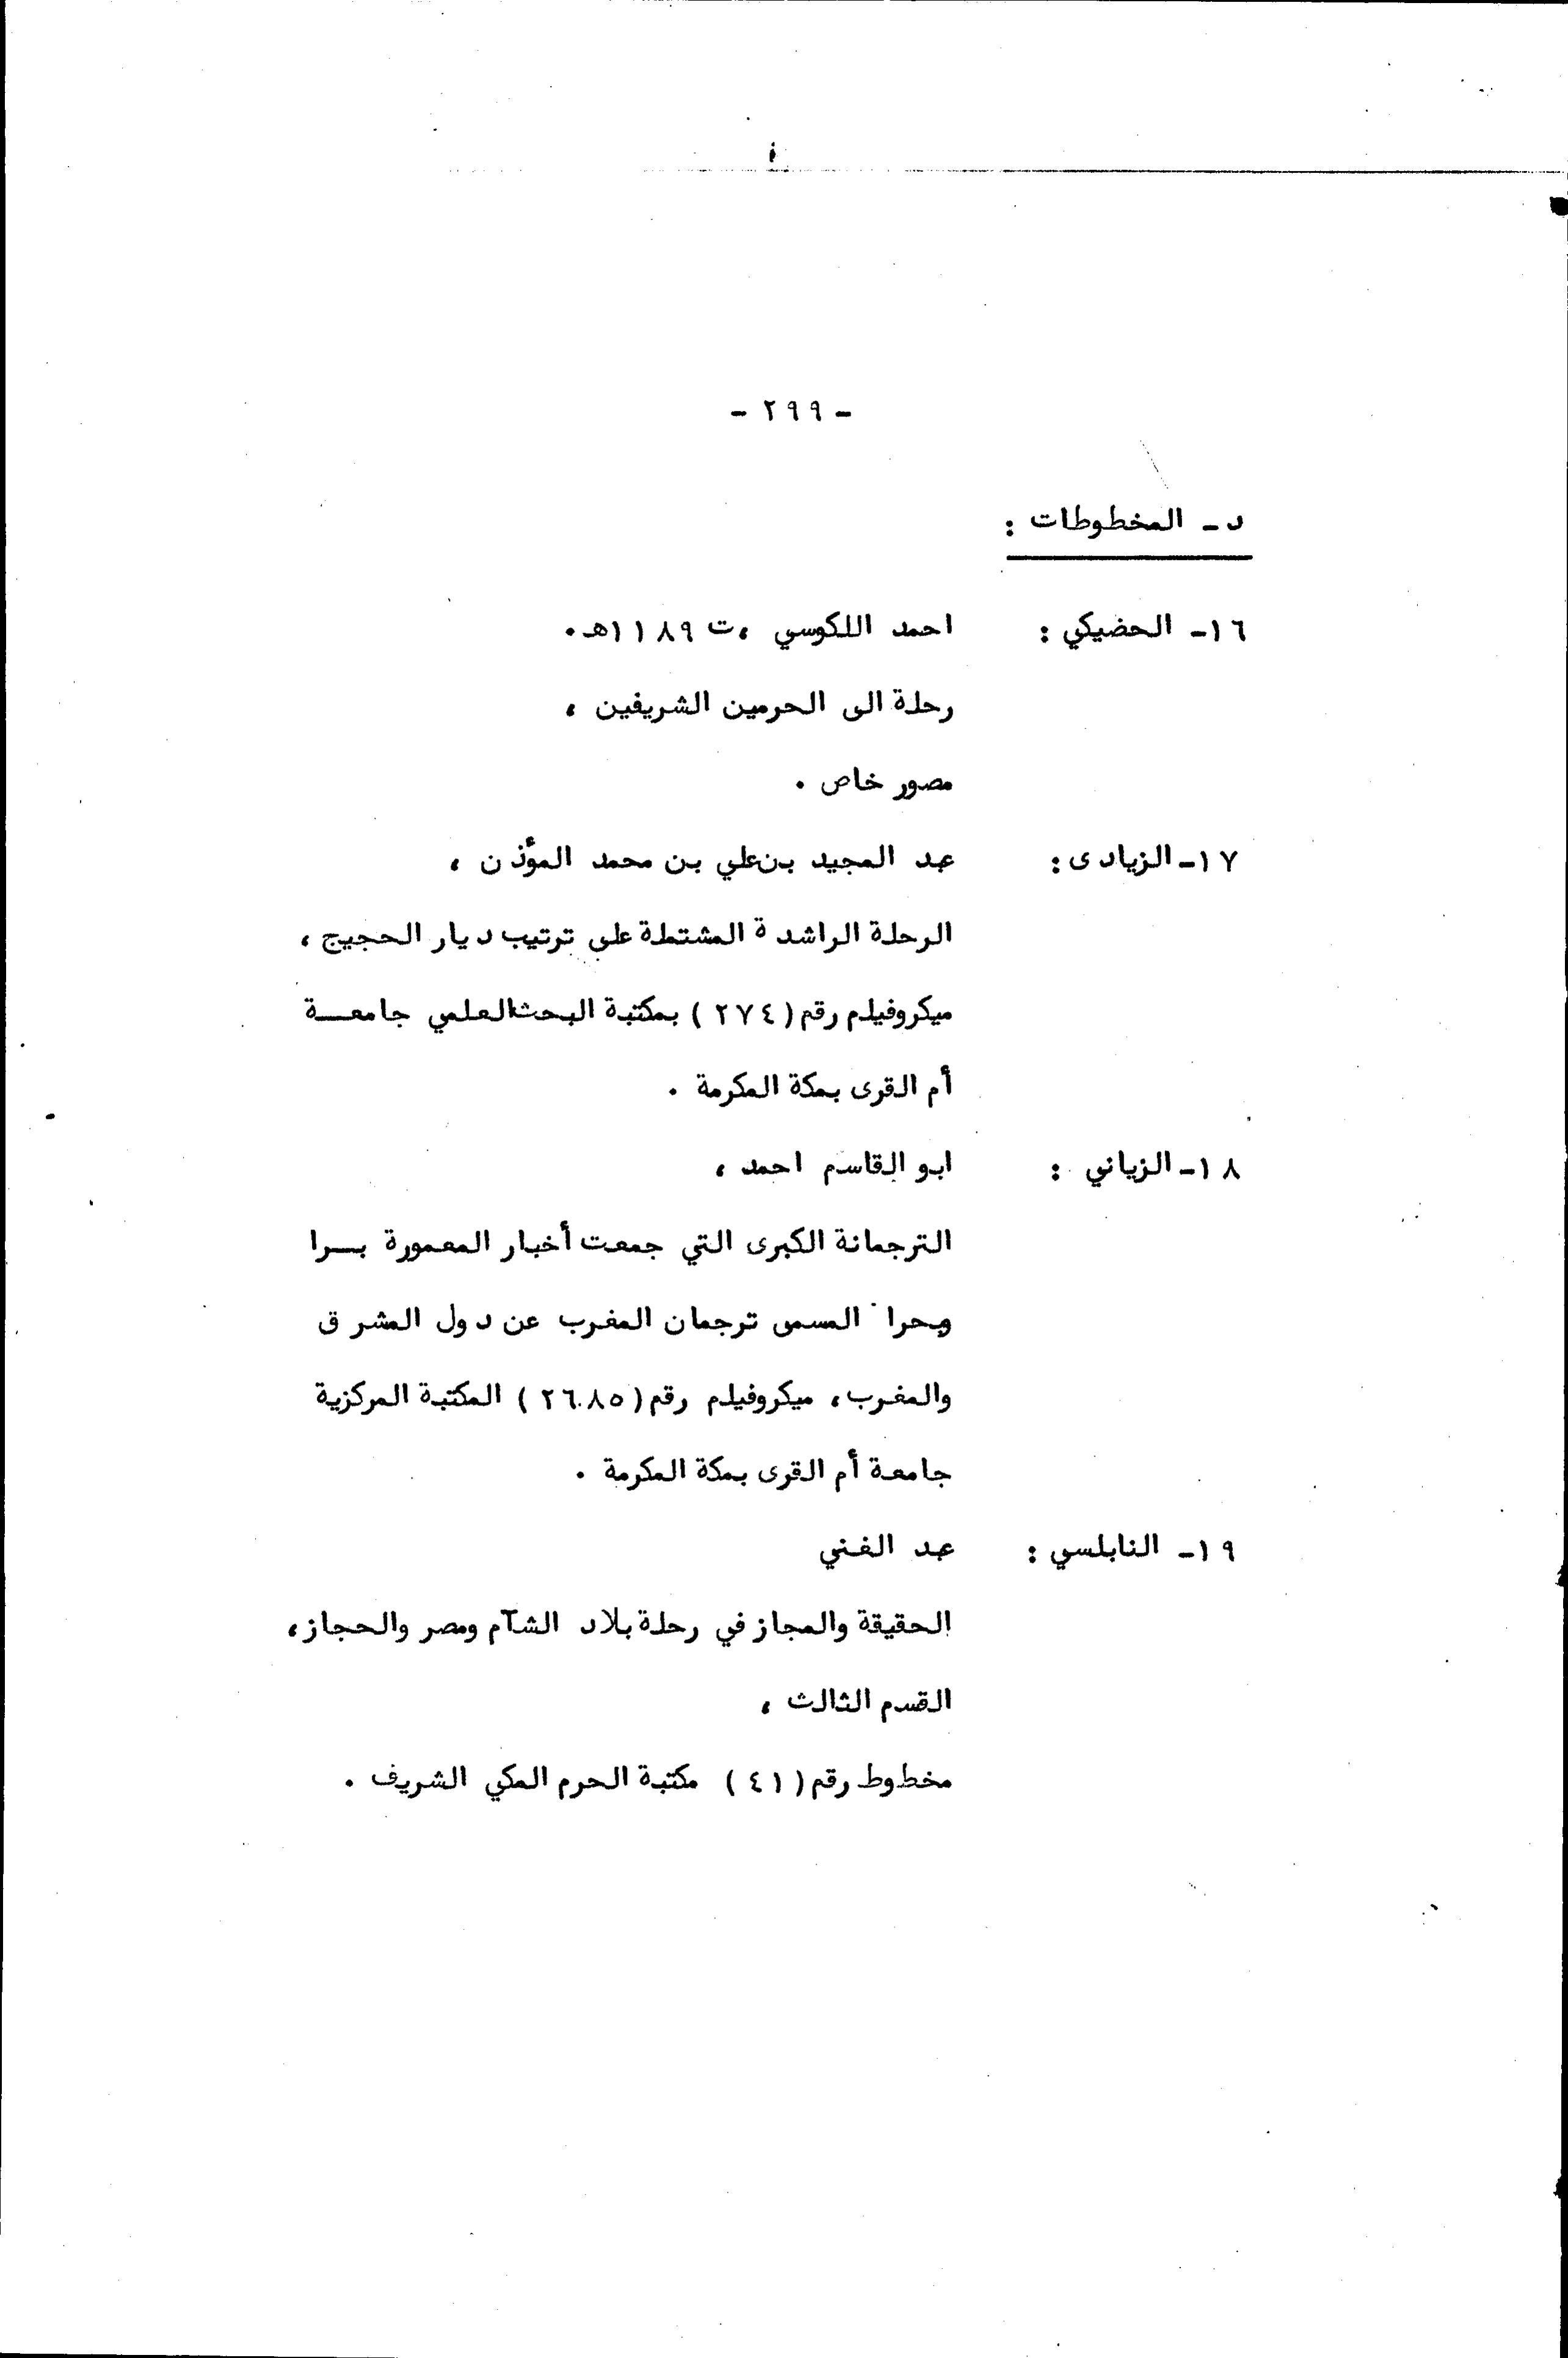 - ٢٩٩ -
د - المخطوطات :
١٦- الحضيكي : احمد اللكوسي ، ت ١١٨٩هـ .
رحلة الى الحرمين الشريفين ،
مصور خاص .
١٧- الزيادى : عبد المجيد بن علي بن محمد المؤذن ،
الرحلة الراشدة المشتملة على ترتيب ديار الحجيج ،
ميكروفيلم رقم ( ٢٧٤ ) بمكتبة البحث العلمي جامعـــة
أم القرى بمكة المكرمة .
١٨- الزياني : ابو القاسم احمد ،
الترجمانة الكبرى التي جمعت أخبار المعمورة بـــرا
وبحرا المسمى ترجمان المغرب عن دول المشرق
والمغرب ، ميكروفيلم رقم ( ٢٦٨٥ ) المكتبة المركزية
جامعة أم القرى بمكة المكرمة .
١٩- النابلسي : عبد الغني
الحقيقة والمجاز في رحلة بلاد الشآم ومصر والحجاز ،
القسم الثالث ،
مخطوط رقم ( ٤١ ) مكتبة الحرم المكي الشريف .